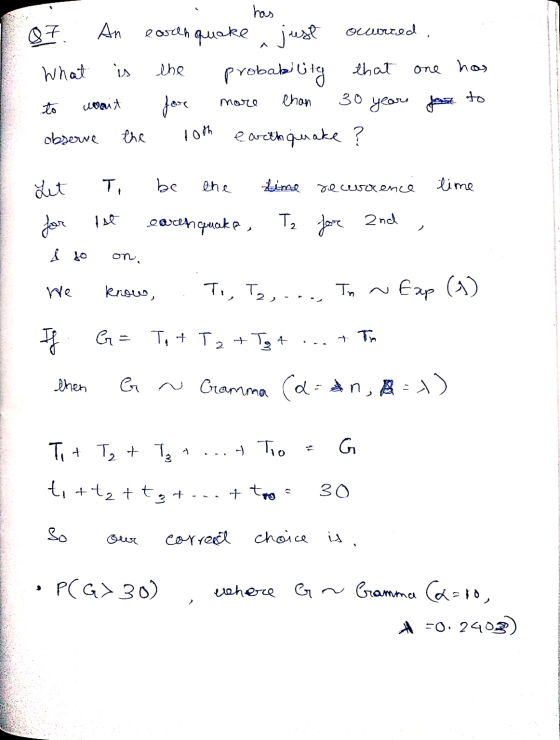 has
Q7. An earthquake ^ just occurred.
What is the probability that one has
to wait for more than 30 year to
observe the 10th earthquake?
Let T₁ be the time recurrence time
for 1st earthquake, T₂ for 2nd,
& so on.
We know, T₁, T₂, ..., Tₙ ~ Exp (λ)
If G = T₁ + T₂ + T₃ + ... + Tₙ
then G ~ Gramma (α = n, β = λ)
T₁ + T₂ + T₃ + ... + T₁₀ = G
t₁ + t₂ + t₃ + ... + t₁₀ = 30
So our correct choice is.
• P(G > 30) , where G ~ Gramma (α = 10,
λ = 0.2403)